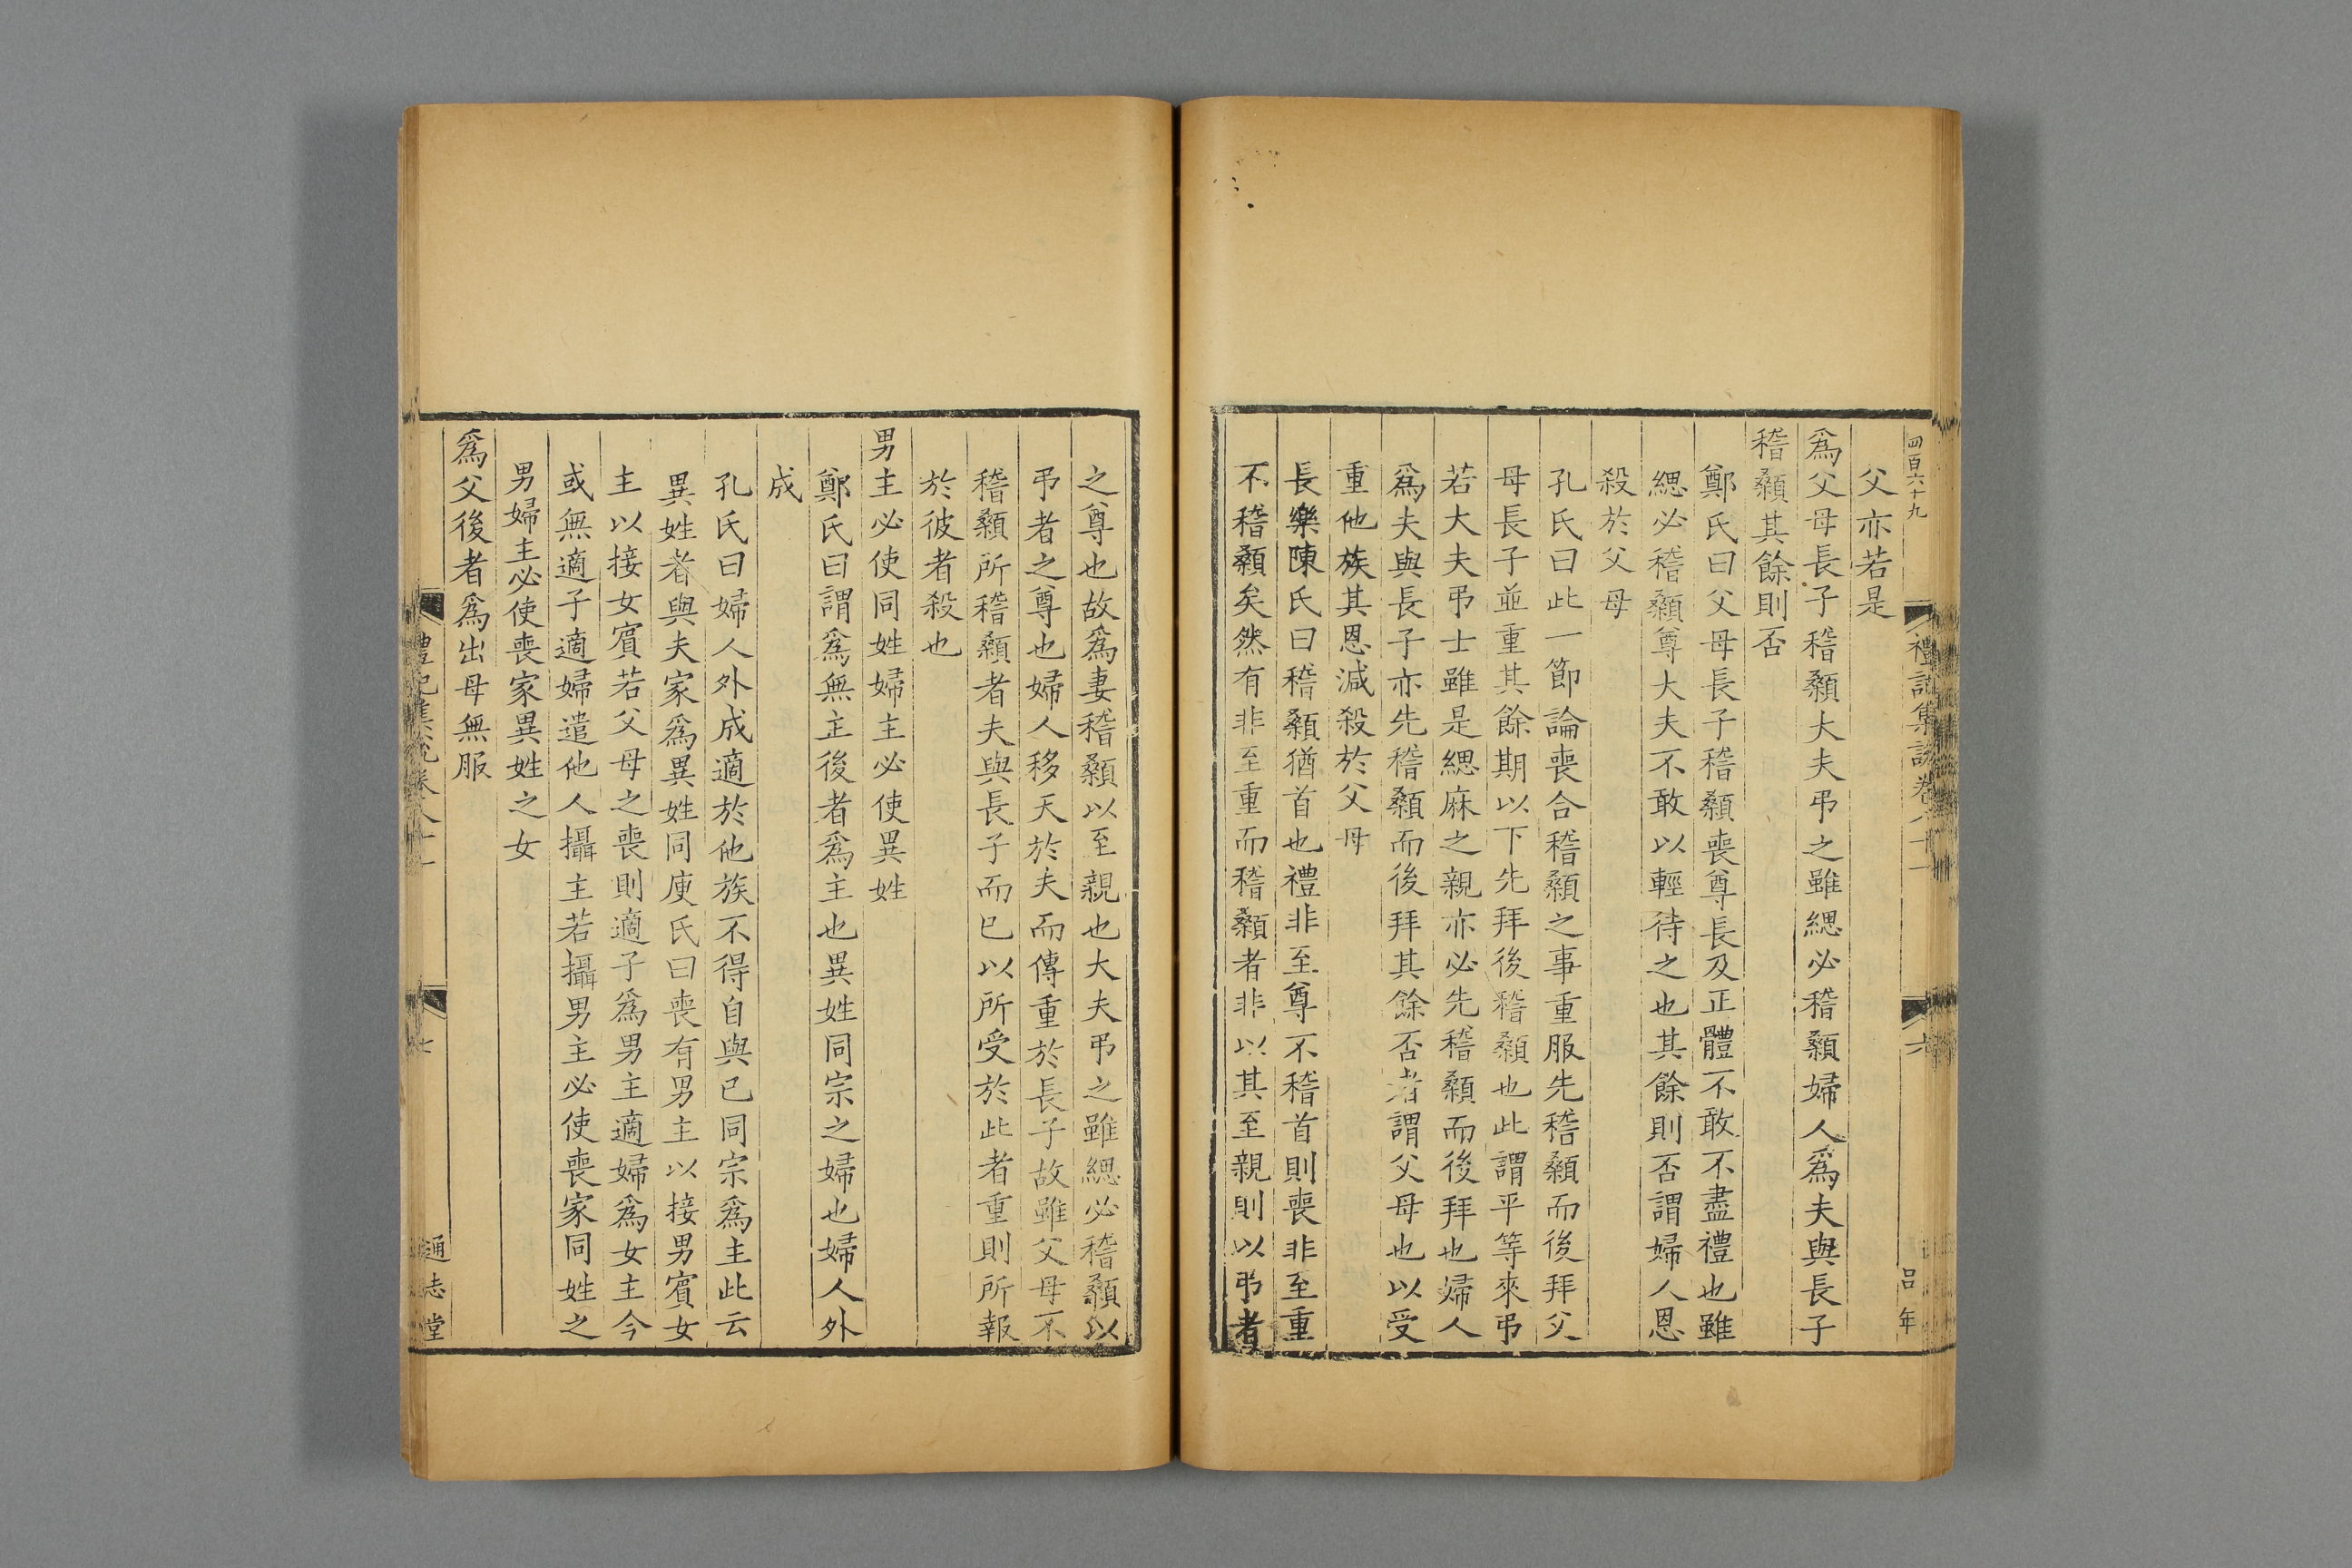 四百六十九
禮記集說卷八十一
六
呂年
父亦若是
爲父母長子稽顙大夫弔之雖緦必稽顙婦人爲夫與長子
稽顙其餘則否
鄭氏曰父母長子稽顙喪尊長及正體不敢不盡禮也雖
緦必稽顙尊大夫不敢以輕待之也其餘則否謂婦人恩
殺於父母
孔氏曰此一節論喪合稽顙之事重服先稽顙而後拜父
母長子並重其餘期以下先拜後稽顙也此謂平等來弔
若大夫弔士雖是緦麻之親亦必先稽顙而後拜也婦人
爲夫與長子亦先稽顙而後拜其餘否者謂父母也以受
重他族其恩減殺於父母
長樂陳氏曰稽顙猶首也禮非至尊不稽首則喪非至重
不稽顙矣然有非至重而稽顙者非以其至親則以弔者
之尊也故爲妻稽顙以至親也大夫弔之雖緦必稽顙以
弔者之尊也婦人移天於夫而傳重於長子故雖父母不
稽顙所稽顙者夫與長子而已以所受於此者重則所報
於彼者殺也
男主必使同姓婦主必使異姓
鄭氏曰謂爲無主後者爲主也異姓同宗之婦也婦人外
成
孔氏曰婦人外成適於他族不得自與己同宗爲主此云
異姓者與夫家爲異姓同庾氏曰喪有男主以接男賓女
主以接女賓若父母之喪則適子爲男主適婦爲女主今
或無適子適婦遣他人攝主若攝男主必使喪家同姓之
男婦主必使喪家異姓之女
爲父後者爲出母無服
禮記集說卷八十一
七
通志堂